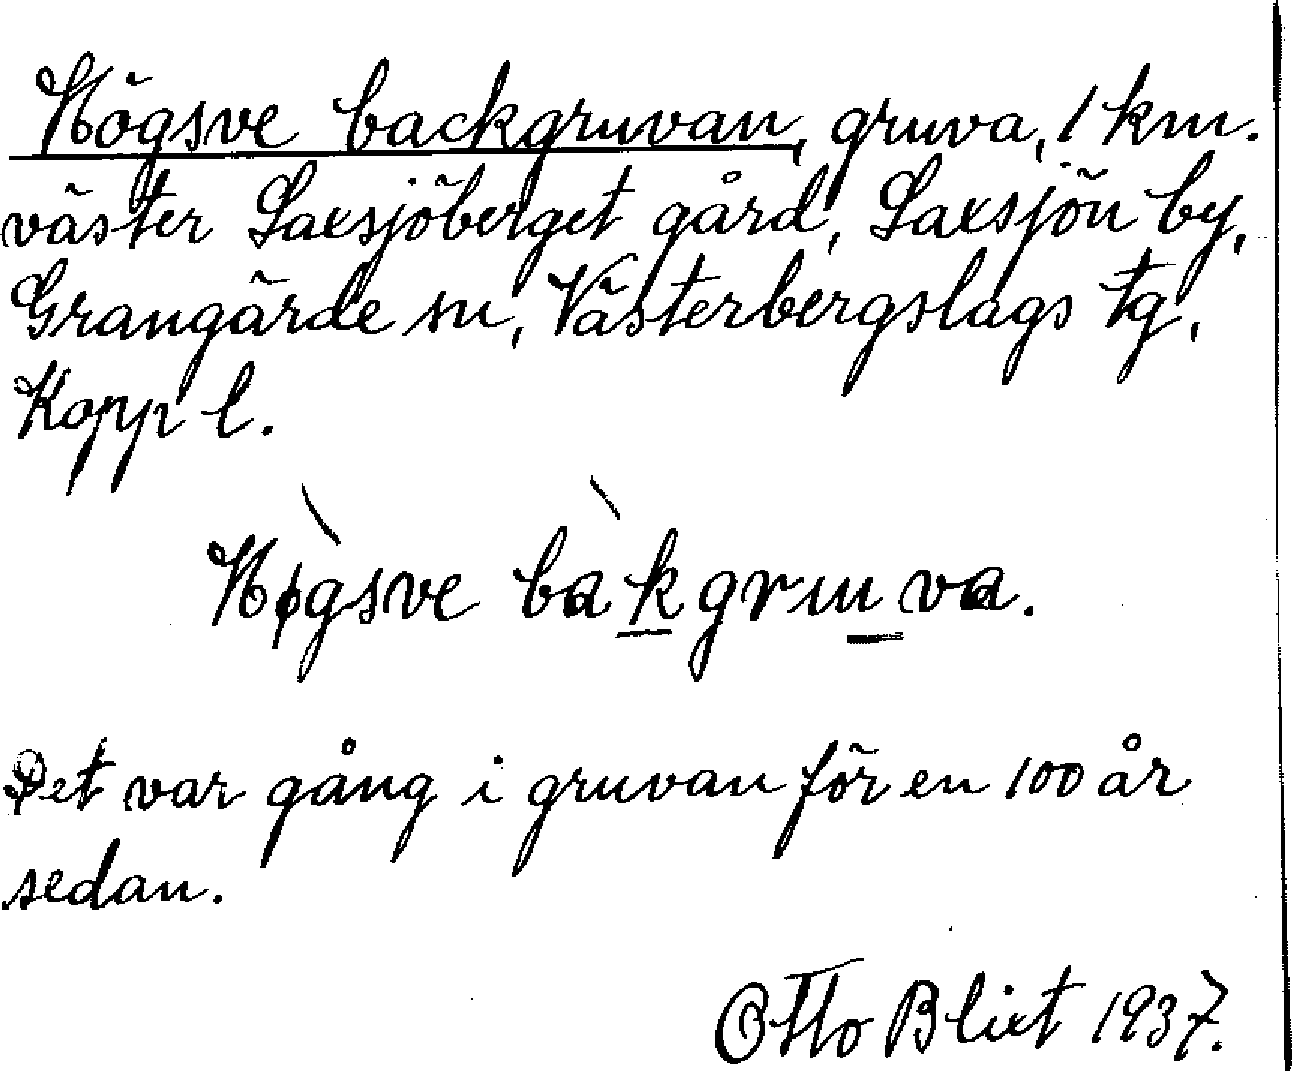 Högsve backgruvan, gruva, 1 km.
väster Saxsjöberget gård, Saxsjön by,
Grangärde sn, Västerbergslags tg,
Kopp l.
Høgsve bakgruva.
Det var gång i gruvan för en 100 år
sedan.
Otto Blixt 1937.